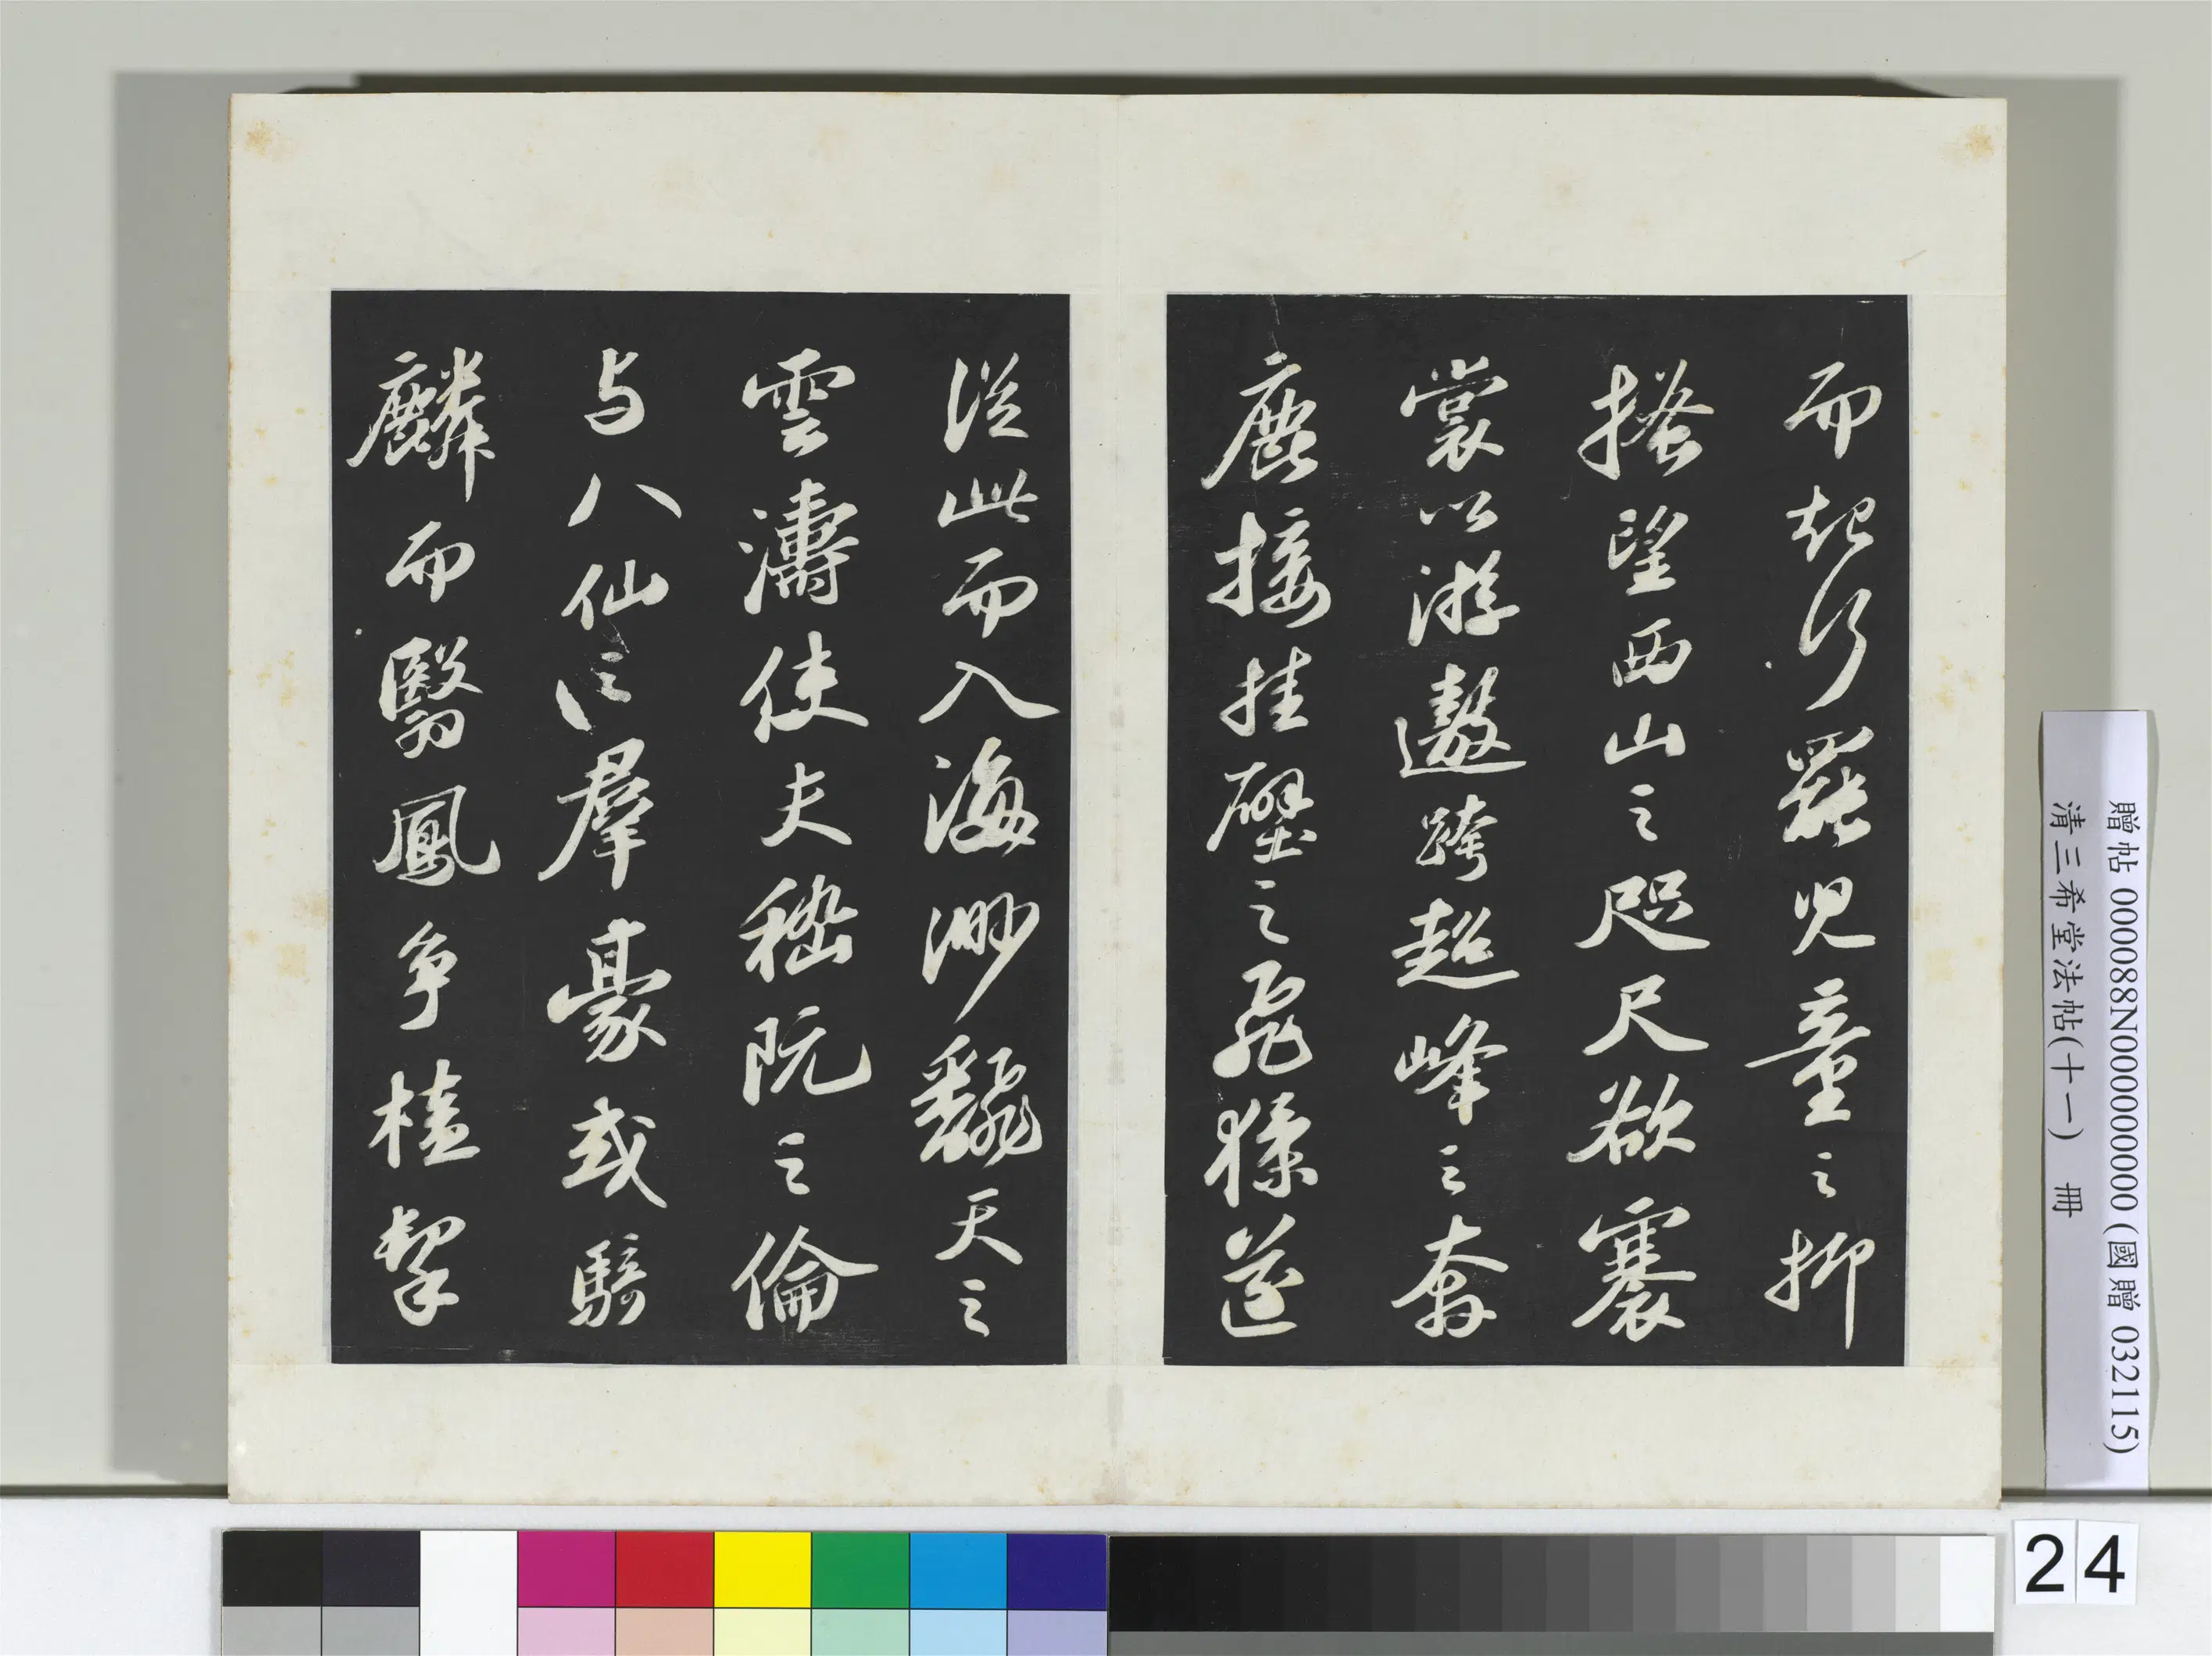 而起行罷兒童之抑
搔望西山之咫尺欲褰
裳以游遨跨超峰之奔
鹿接挂壁之飛猱遂
從此而入海渺飜天之
雲濤使夫嵇阮之倫
与八仙之羣豪或騎
麟而翳鳳争榼挈
贈帖 000088N000000000 (國贈 032115)
清三希堂法帖(十一) 冊
24